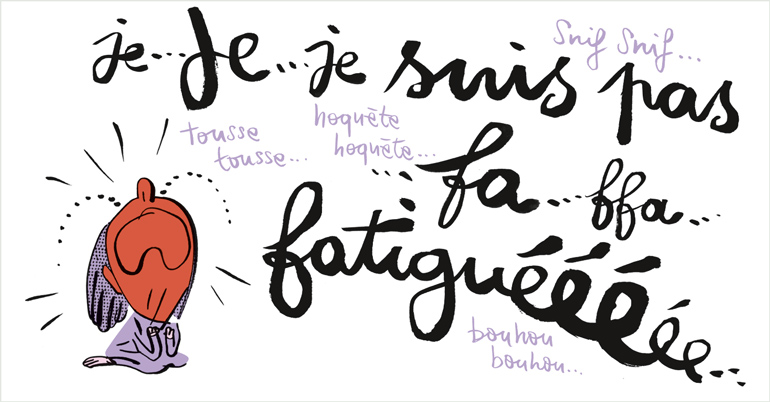 je... Je... je suis pas
Snif Snif...
tousse
tousse...
hoquète
hoquète...
fa... ffa...
fatiguééééée...
bouhou
bouhou...